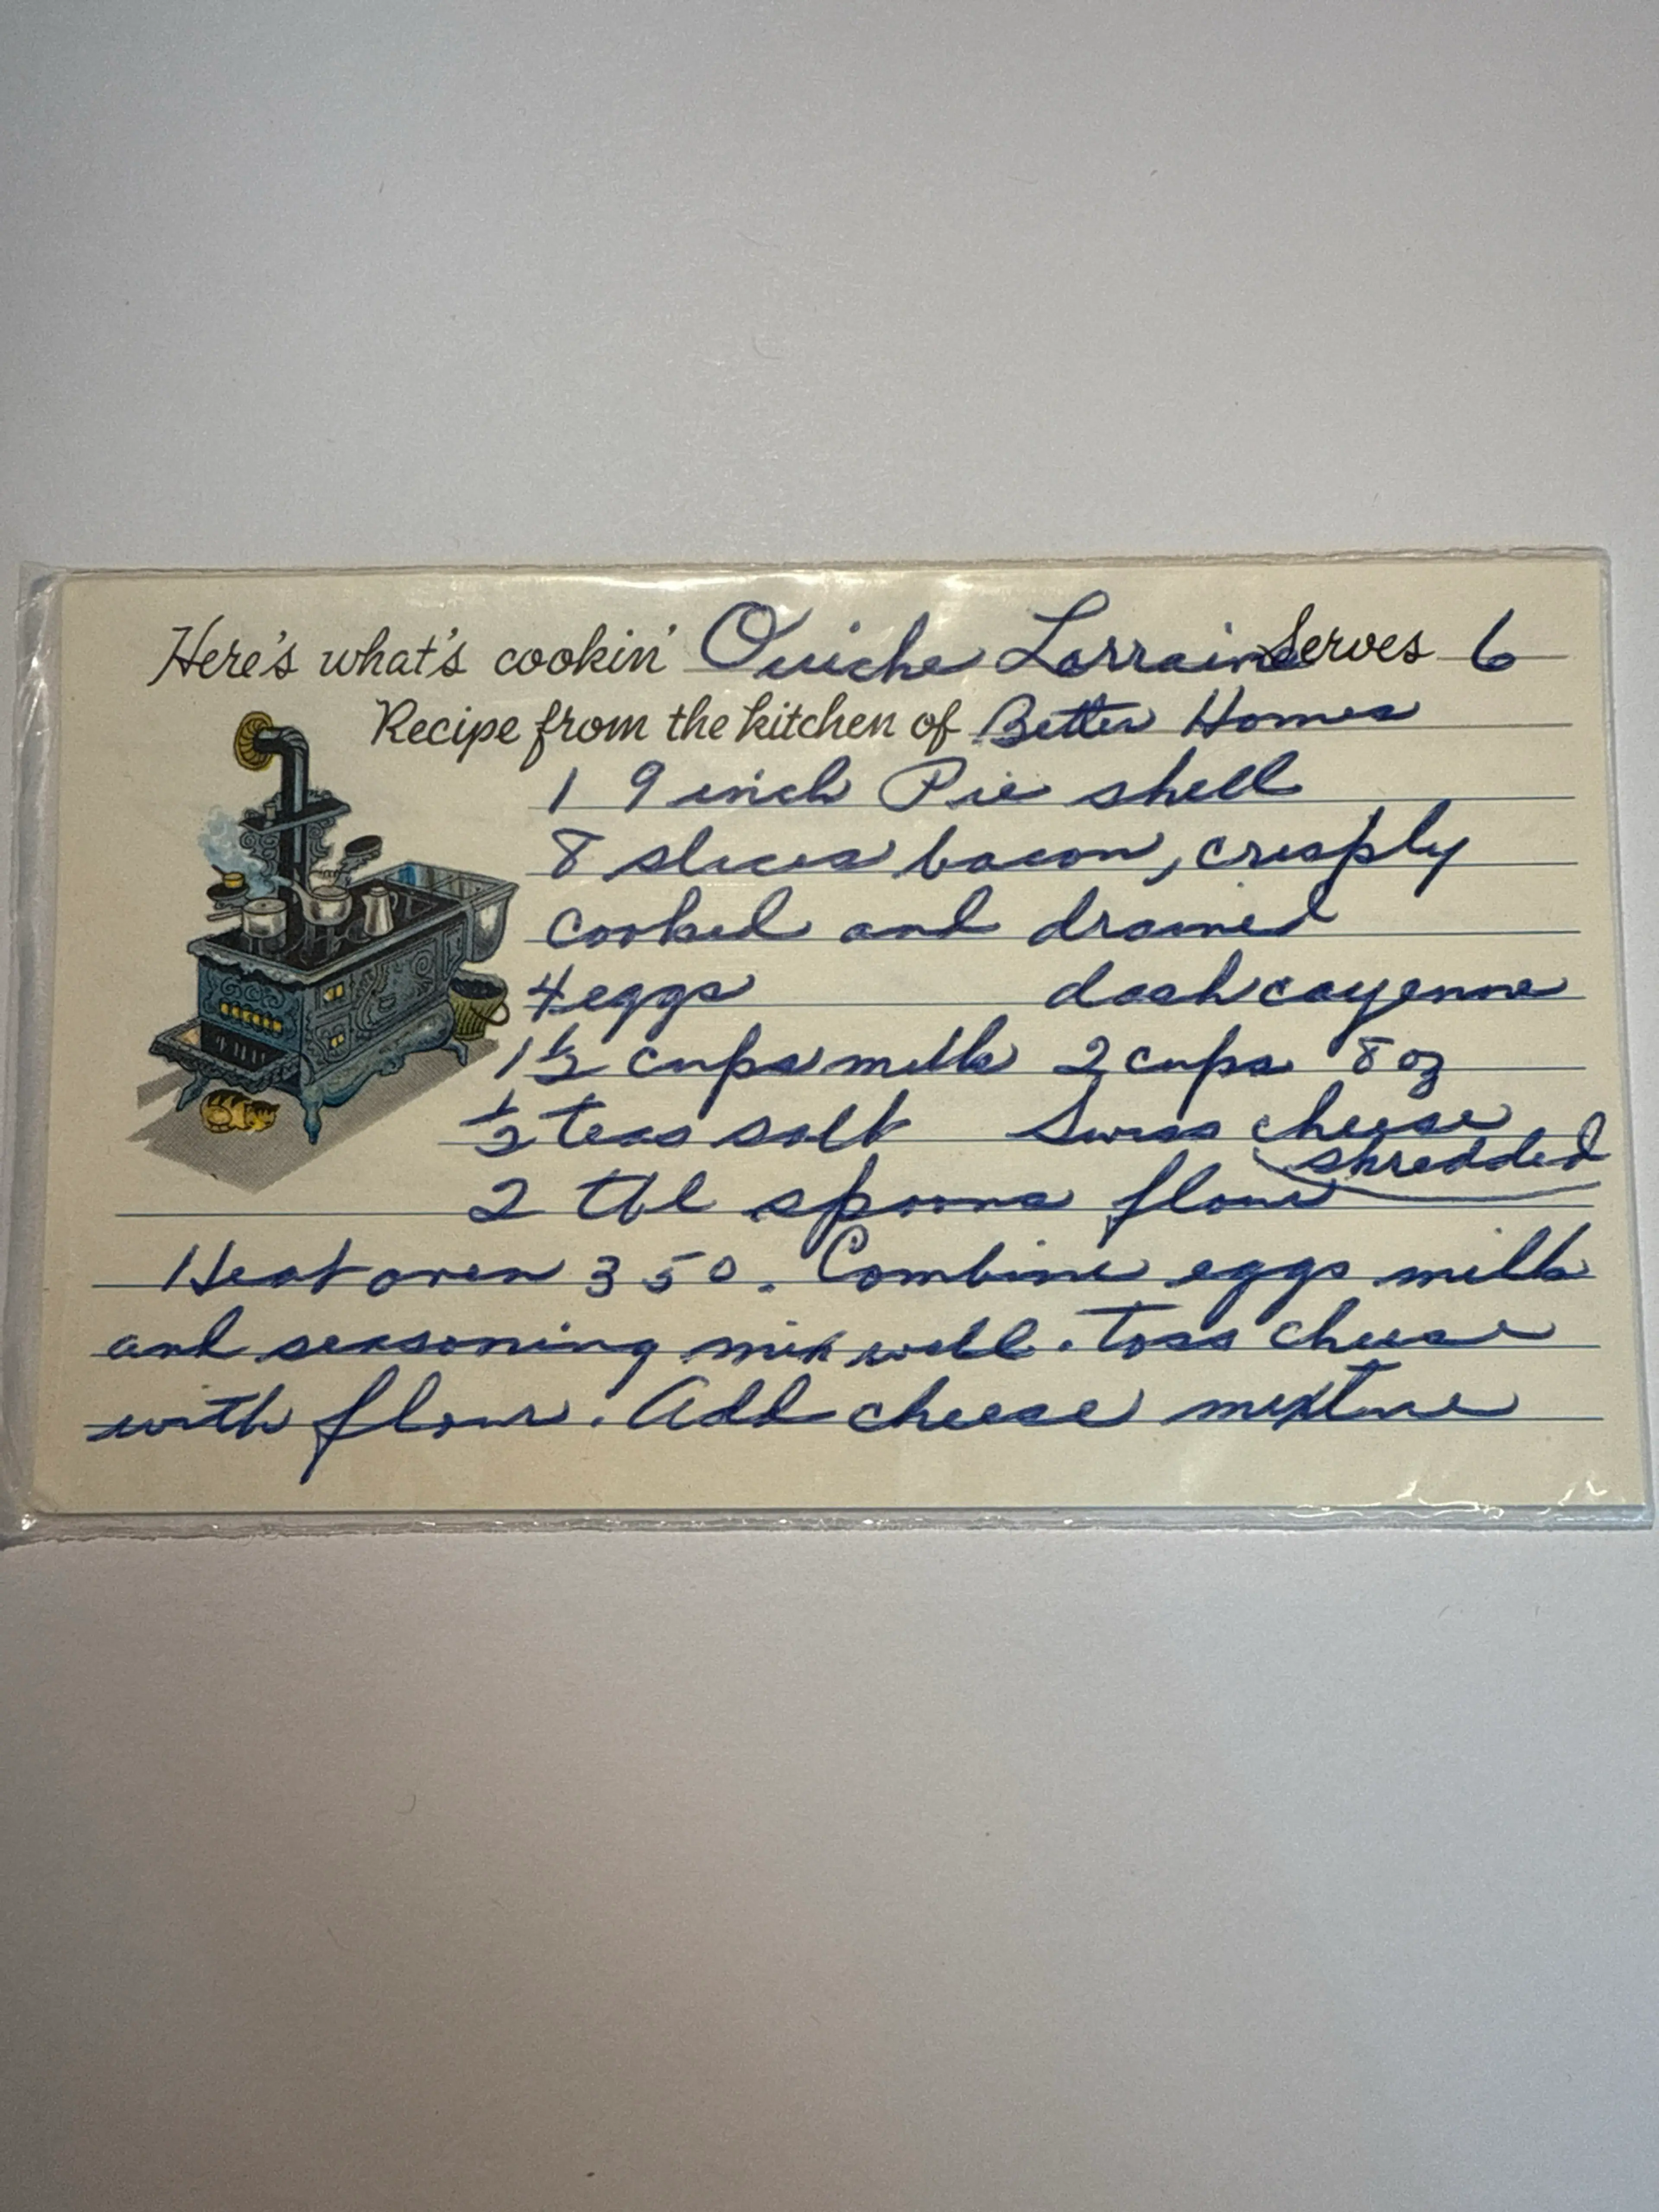 Here's what's cookin' Quiche Lorraine Serves 6
Recipe from the kitchen of Better Homes
1 9 inch Pie shell
8 slices bacon, crisply
cooked and drained
4 eggs dash cayenne
1 1/2 cups milk 2 cups 8 oz
1/2 teas salt Swiss cheese
shredded
2 tbl spoons flour
Heat oven 350. Combine eggs milk
and seasoning mix well. Toss cheese
with flour. Add cheese mixture